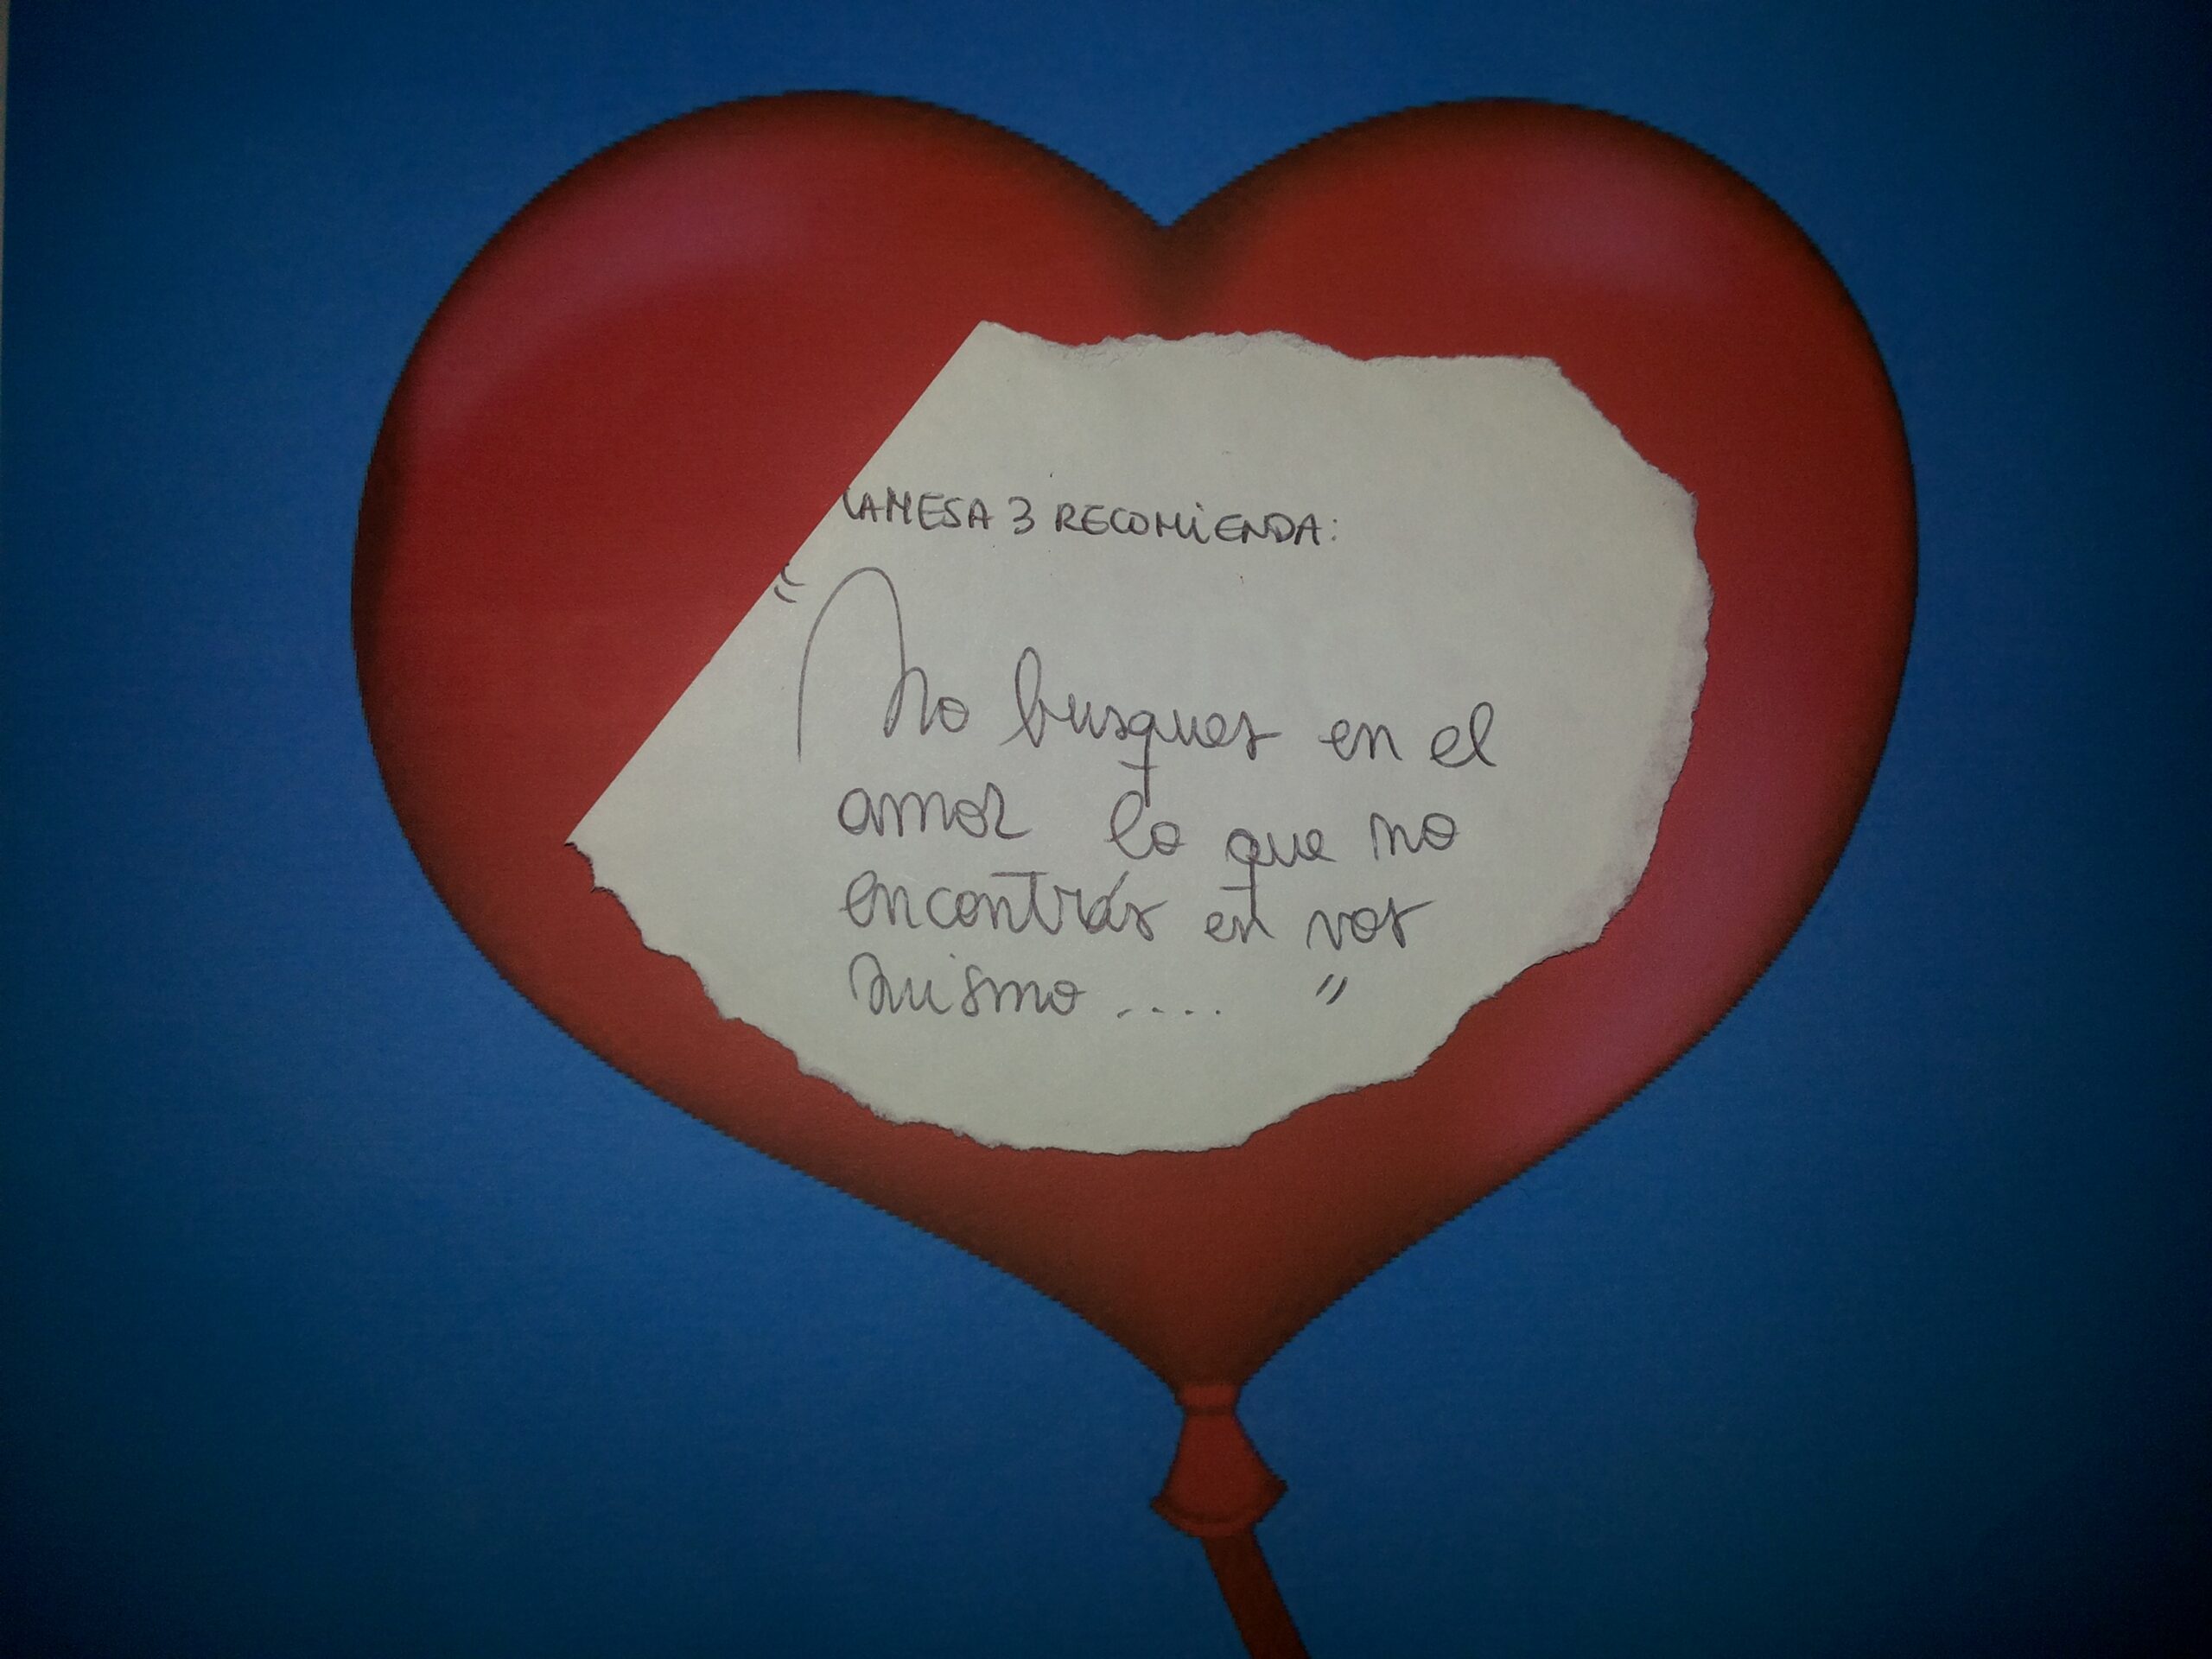 LA MESA 3 RECOMIENDA:
"No busques en el
amor lo que no
encontrás en vos
mismo .... "